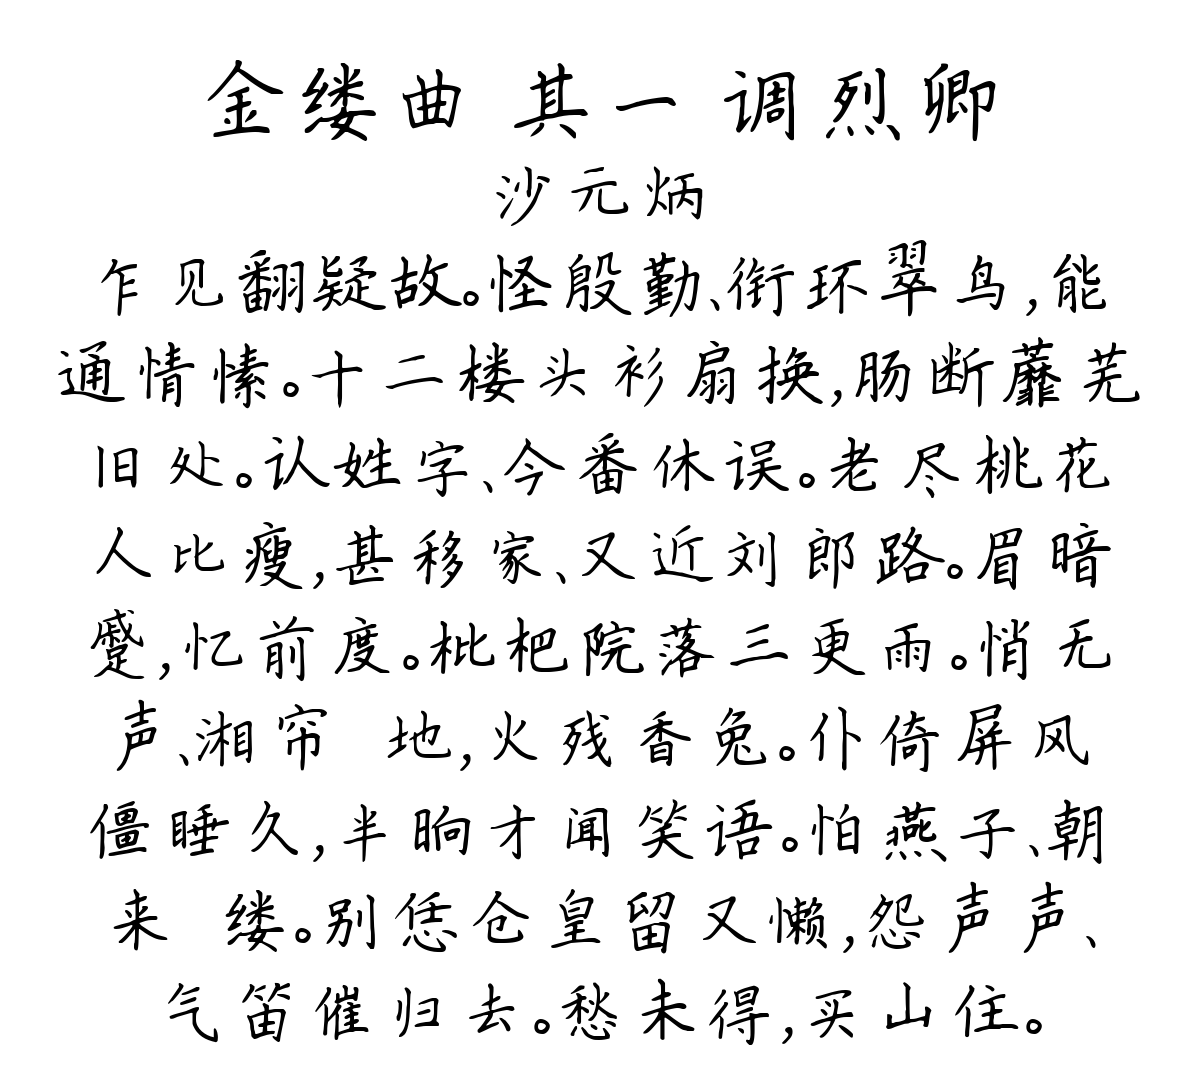 金缕曲 其一 调烈卿
沙元炳
乍见翻疑故。怪殷勤、衔环翠鸟,能
通情愫。十二楼头衫扇换,肠断蘼芜
旧处。认姓字、今番休误。老尽桃花
人比瘦,甚移家、又近刘郎路。眉暗
蹙,忆前度。枇杷院落三更雨。悄无
声、湘帘 地,火残香兔。仆倚屏风
僵睡久,半晌才闻笑语。怕燕子、朝
来 缕。别恁仓皇留又懒,怨声声、
气笛催归去。愁未得,买山住。